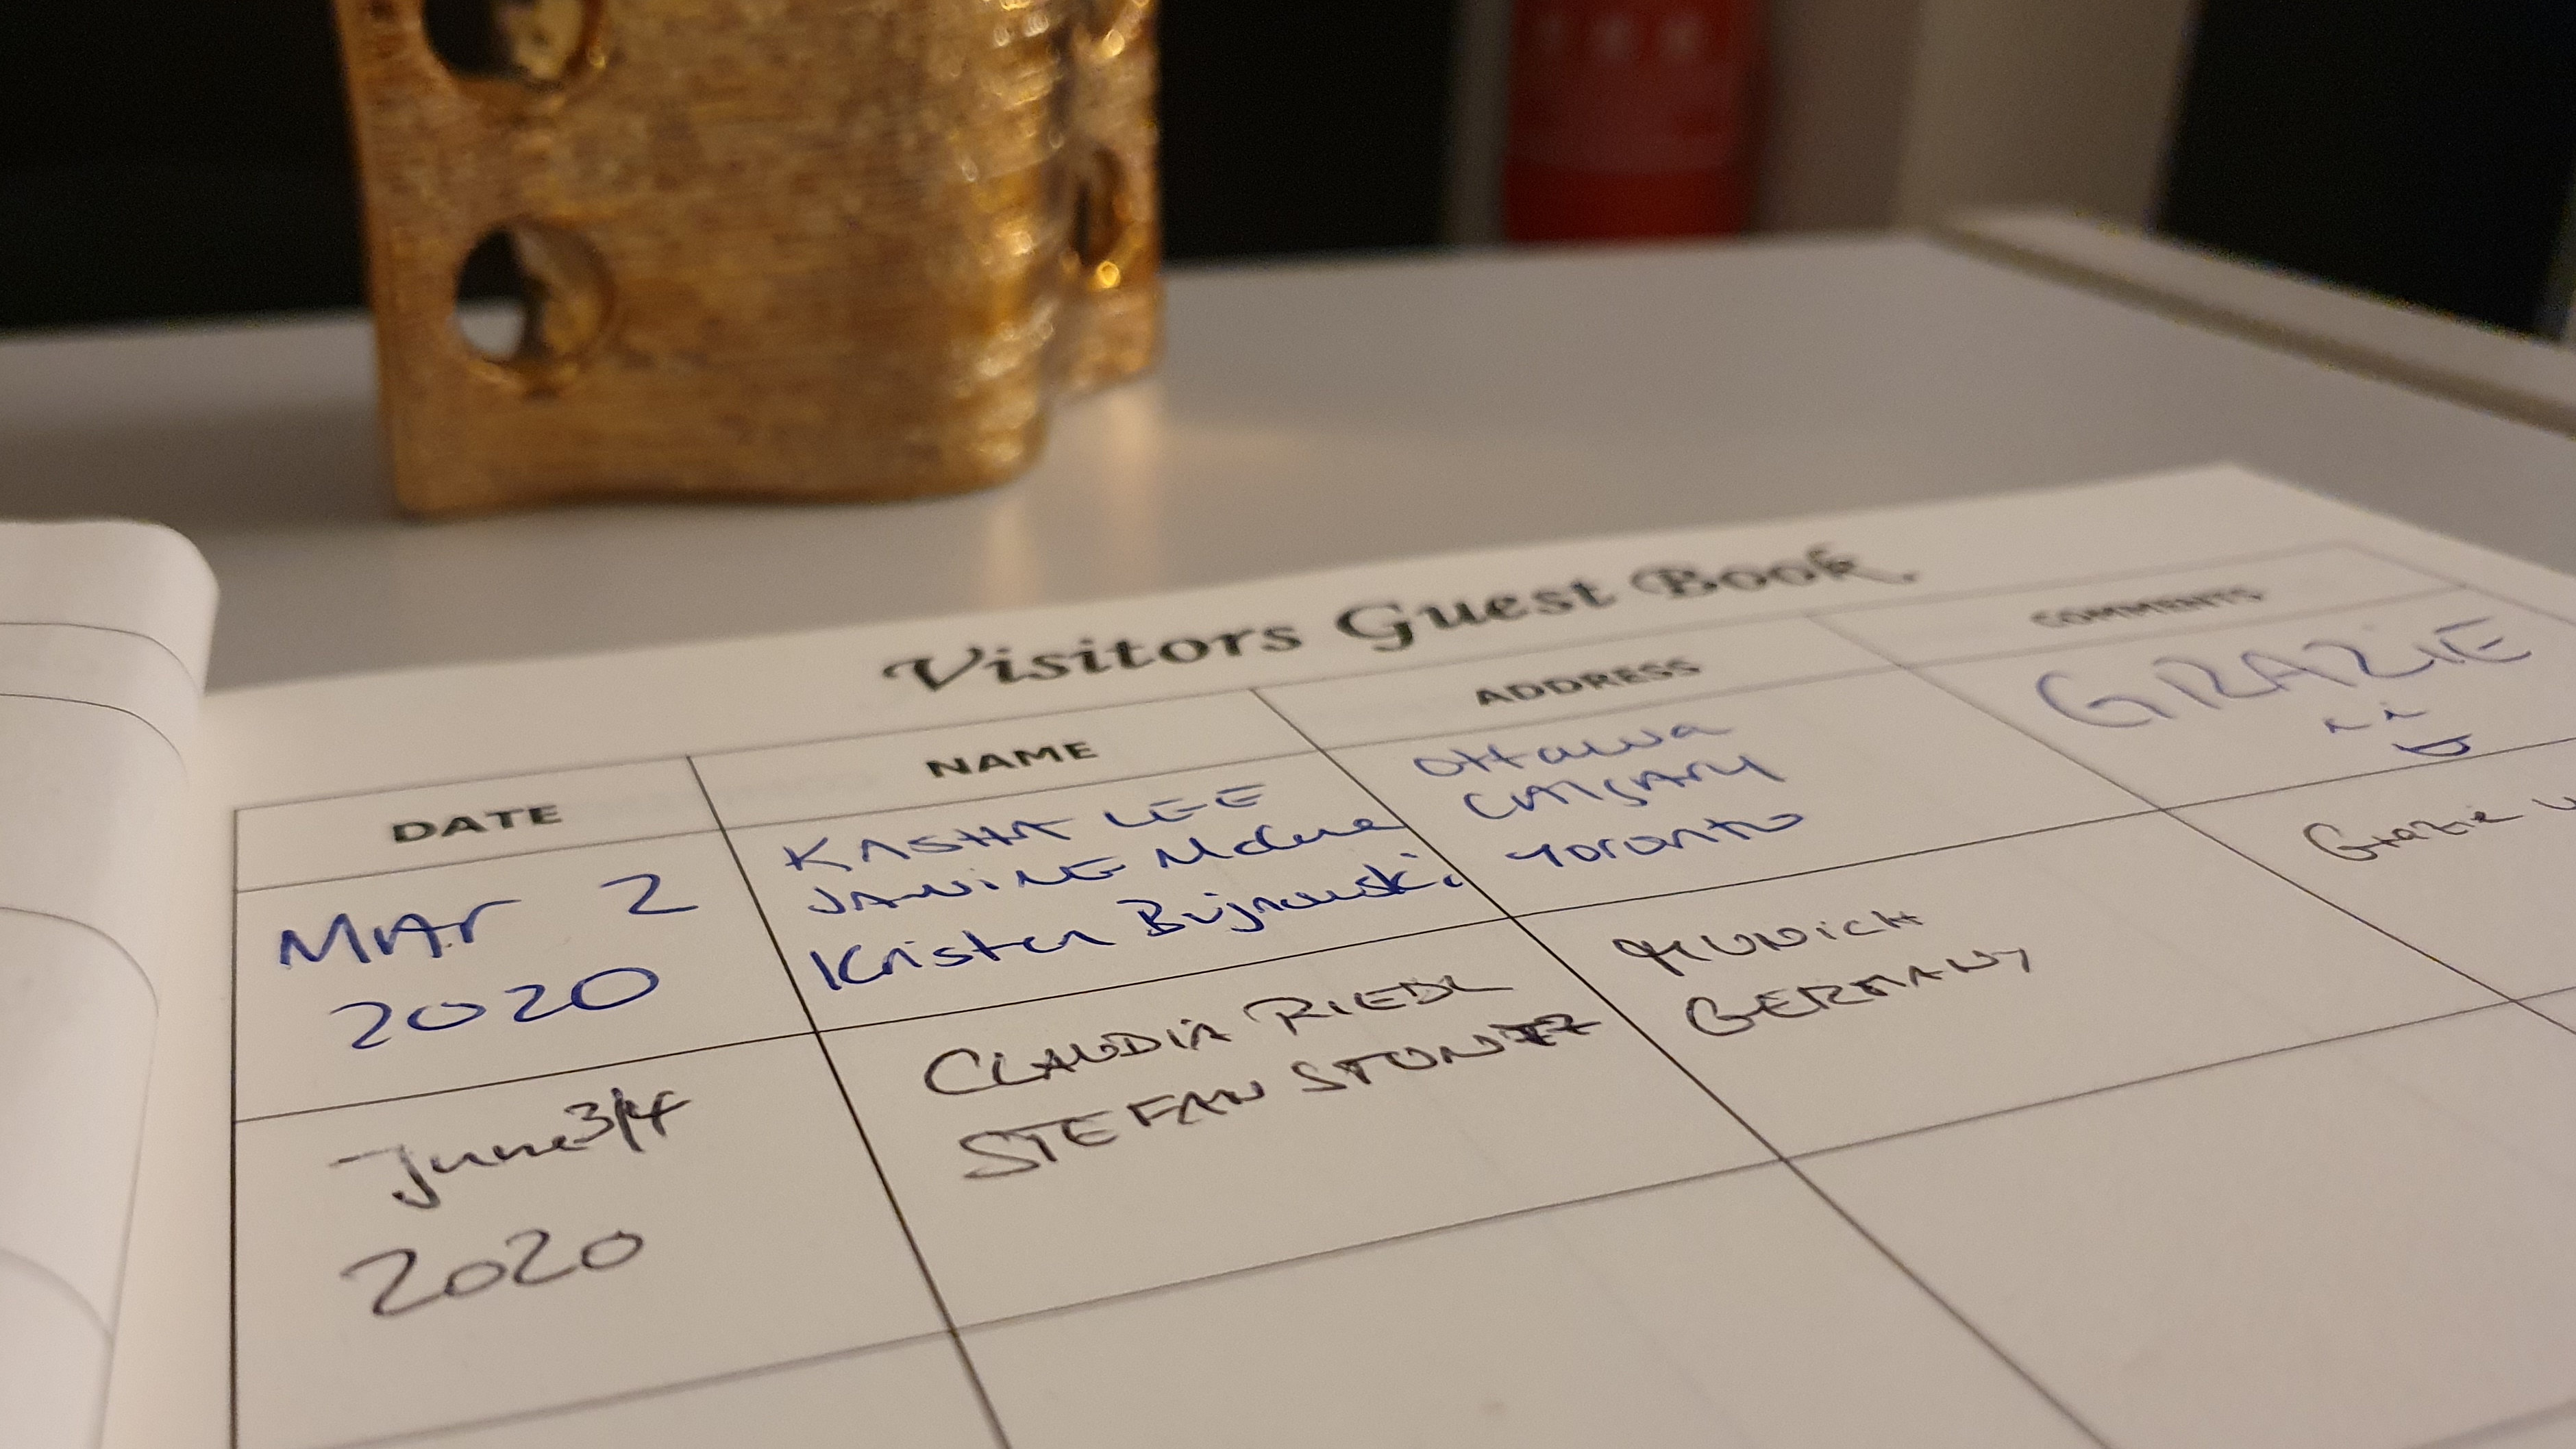 Visitors Guest Book
DATE
NAME
ADDRESS
COMMENTS
MAr 2
2020
KASHA LEE
JANINE
Kristen Bujnowski
Ottawa
CALGARY
Toronto
GRAZIE
June 3/4
2020
CLAUDIA RIEDL
STEFAN
MUNICH
GERMANY
Grazie